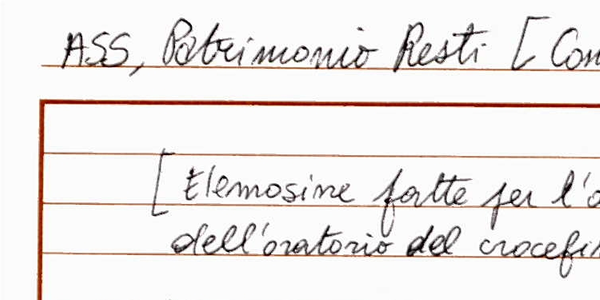 ASS, Patrimonio Resti [ Con
[ Elemosine fatte per l'o
dell'oratorio del crocefi